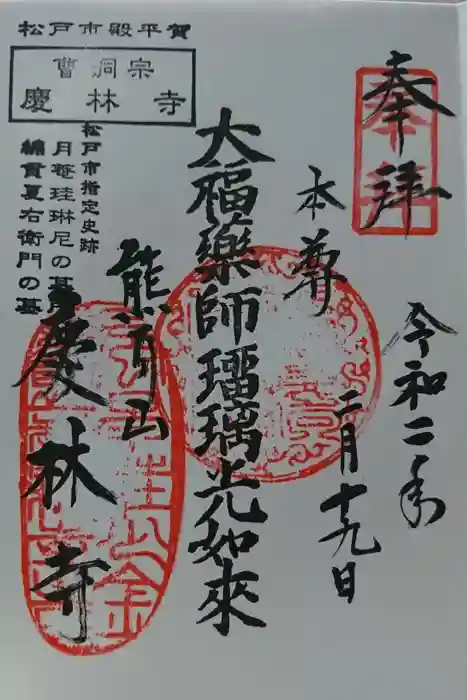 松戸市殿平賀
曹洞宗
慶林寺
松戸市指定史跡
月菴珪琳尼の墓
綿貫夏右衛門の墓
奉拝
令和二年
二月十九日
本尊
大福薬師瑠璃光如來
熊耳山
慶林寺